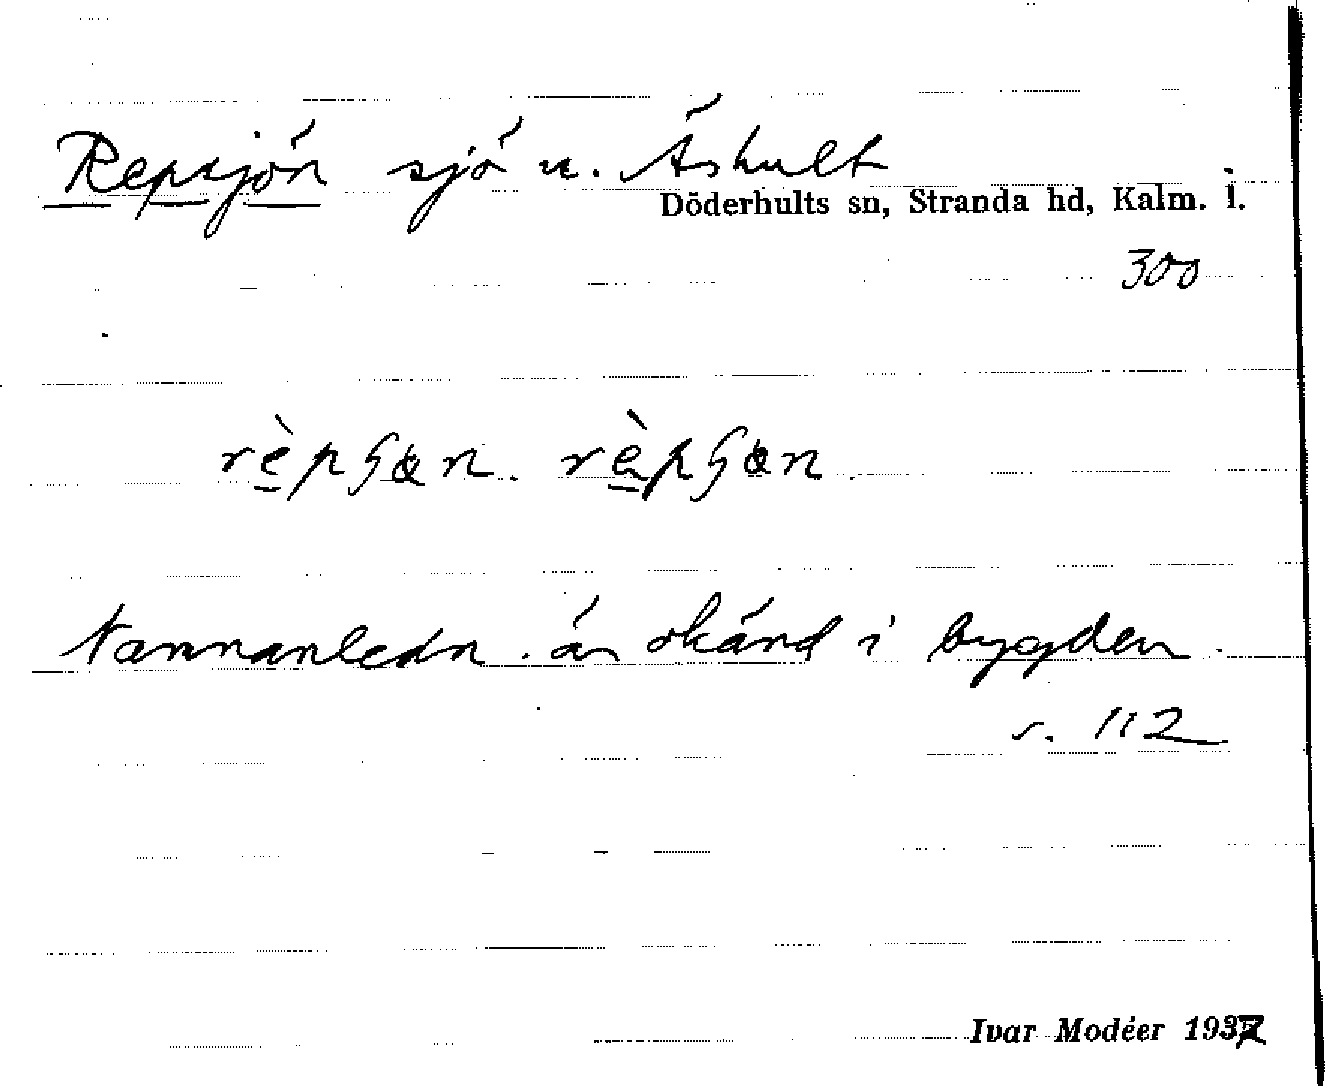 Repsjön sjö n. Äshult
Döderhults sn, Stranda hd, Kalm. l.
300
Namnanledn. är okänd i bygden.
s. 112
Ivar Modéer 1937